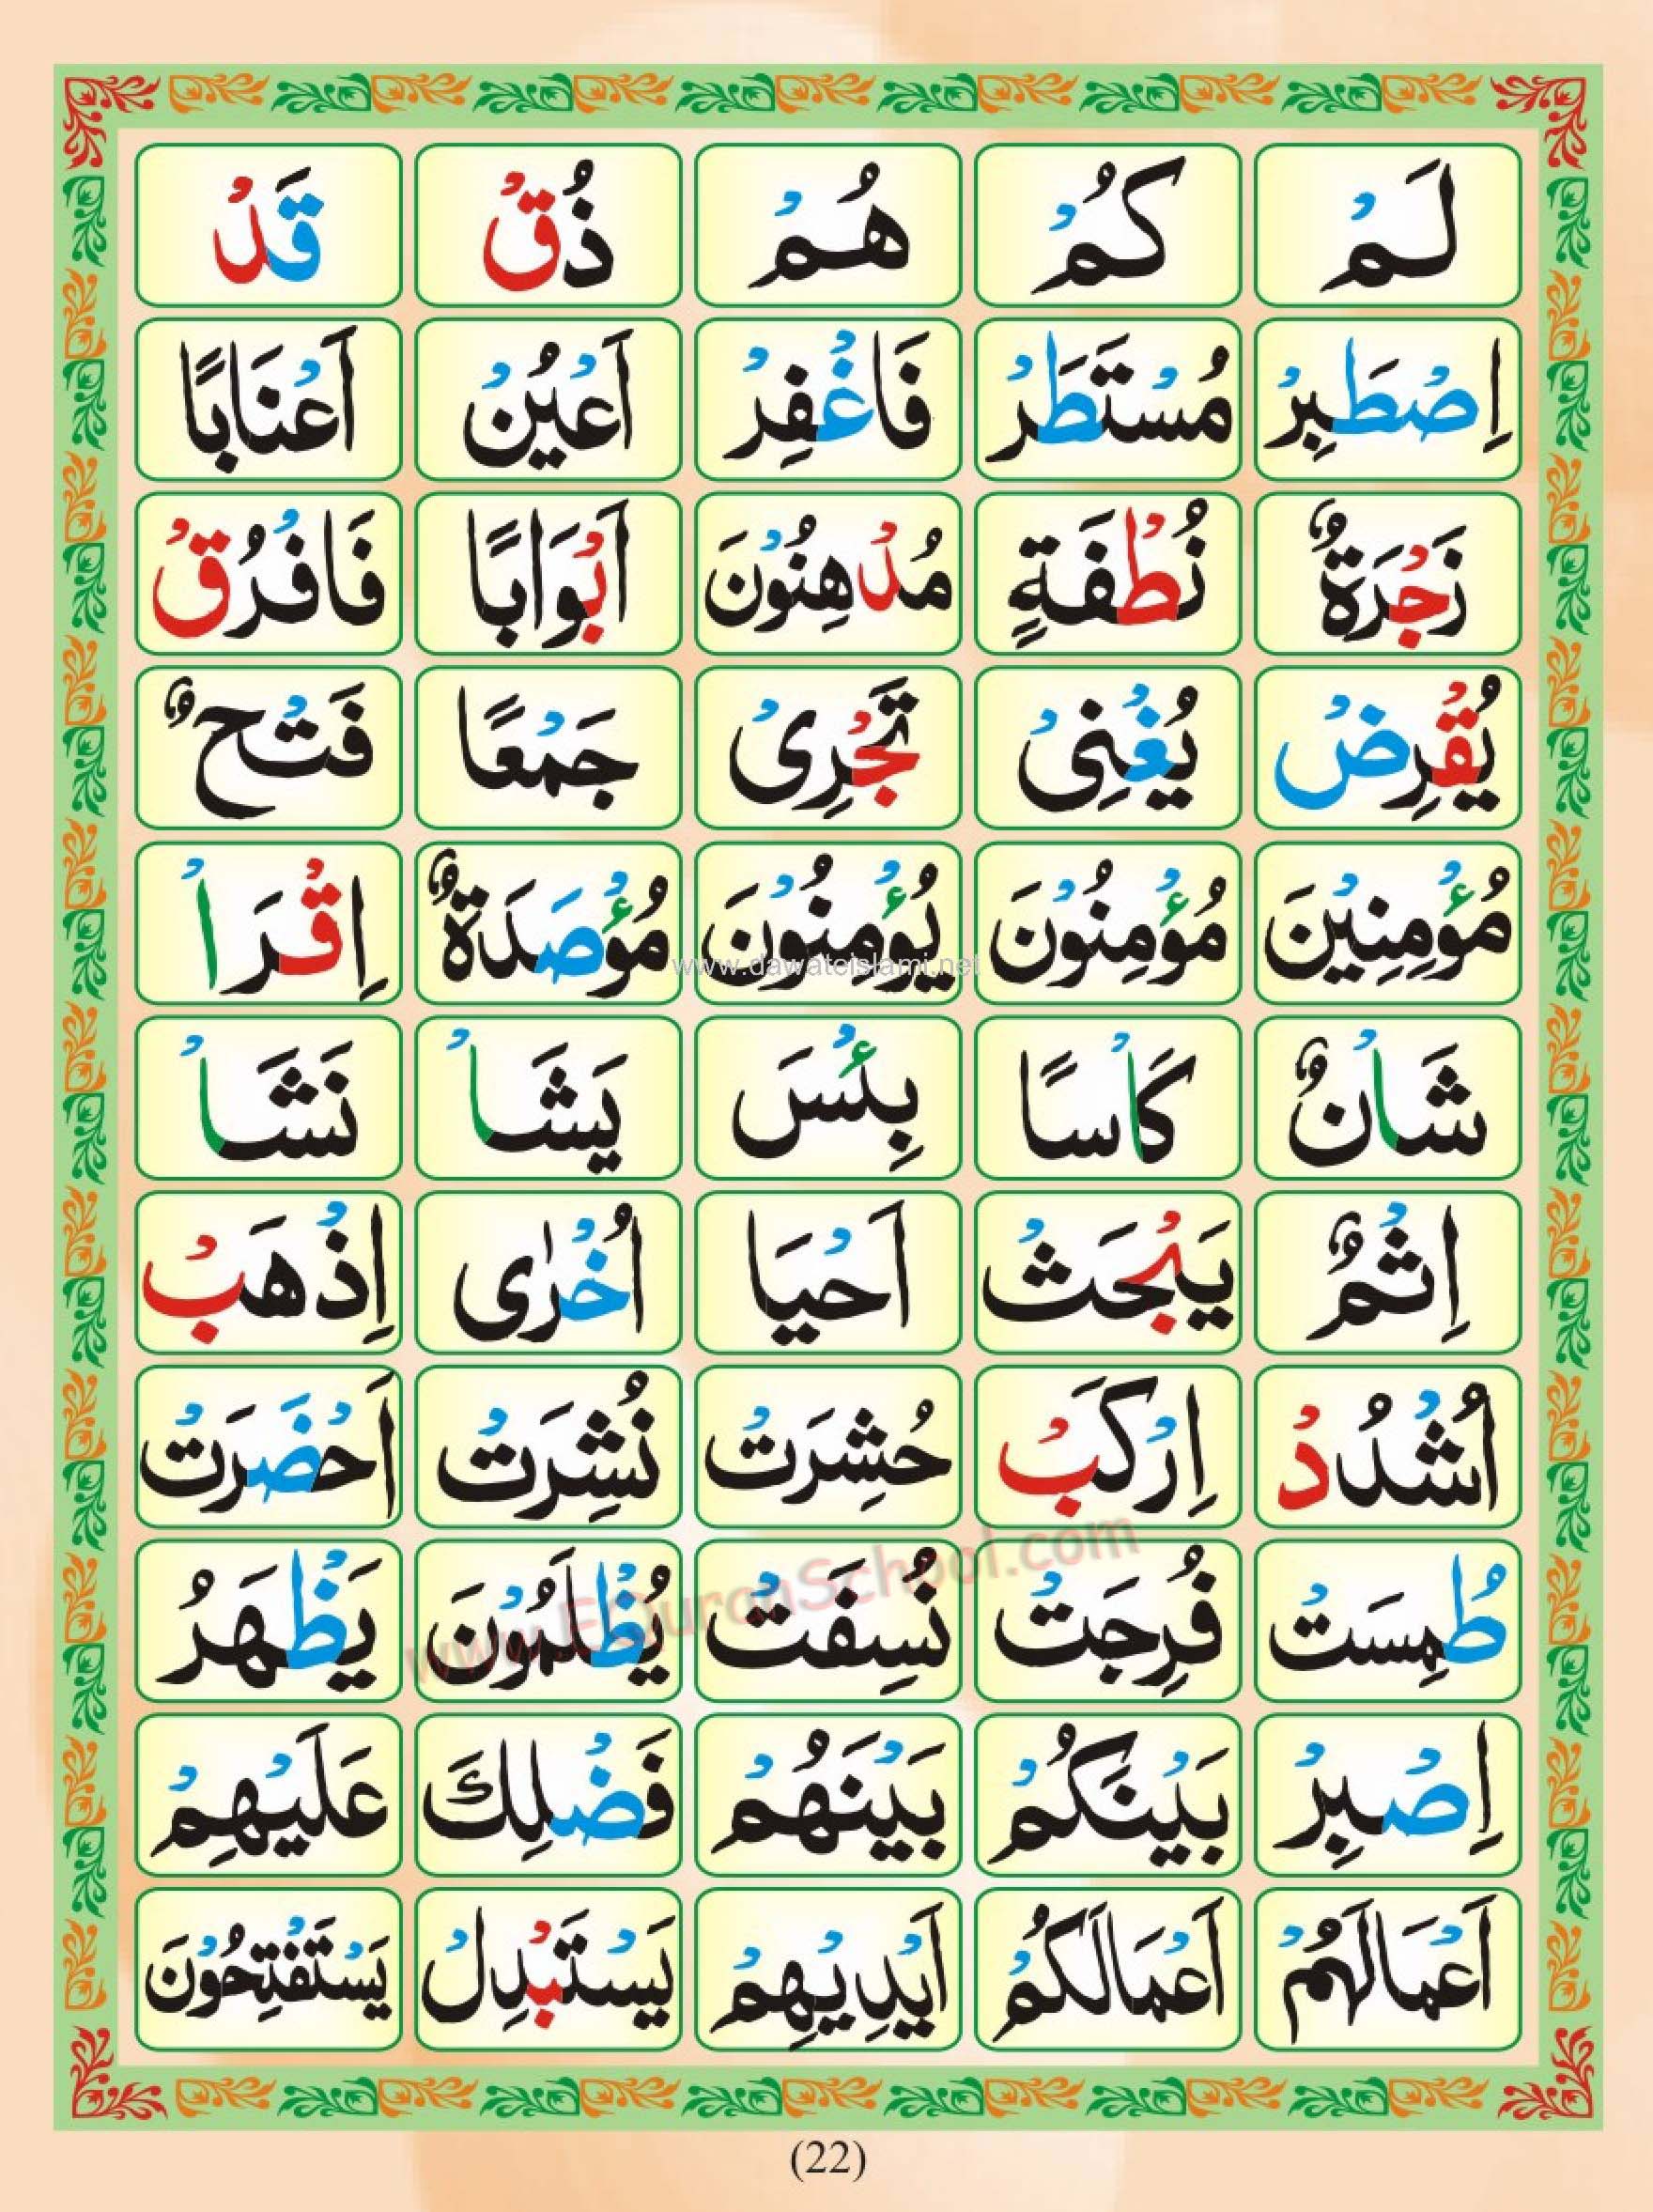 لَمْ كُمْ هُمْ ذُقْ قَدْ
اِصْطَبِرْ مُسْتَطَرْ فَاغْفِرْ اَعْيُنْ اَعْنَابًا
زَجْرَةٌ نُطْفَةٍ مُدْهِنُوْنَ اَبْوَابًا فَافْرُقْ
يُقْرِضْ يُغْنِىْ تَجْرِىْ جَمْعًا فَتْحٌ
مُؤْمِنِيْنَ مُؤْمِنُوْنَ يُؤْمِنُوْنَ مُؤْصَدَةٌ اِقْرَاْ
شَاْنٌ كَاْسًا بِئْسَ يَشَاْ نَشَاْ
اِثْمٌ يَبْحَثْ اَحْيَا اُخْرٰى اِذْهَبْ
اُشْدُدْ اِرْكَبْ حُشِرَتْ نُشِرَتْ اَحْضَرَتْ
طُمِسَتْ فُرِجَتْ نُسِفَتْ يُظْلَمُوْنَ يَظْهَرُ
اِصْبِرْ بَيْنَكُمْ بَيْنَهُمْ فَضْلِكَ عَلَيْهِمْ
اَعْمَالَهُمْ اَعْمَالَكُمْ اَيْدِيْهِمْ يَسْتَبْدِلْ يَسْتَفْتِحُوْنَ
www.dawateislami.net
www.EQuranSchool.com
(22)